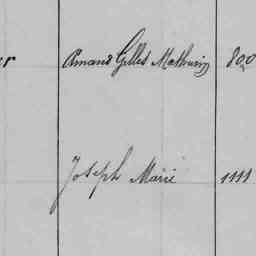 Amand Gilles Mathurin 800
Joseph Marie 1111